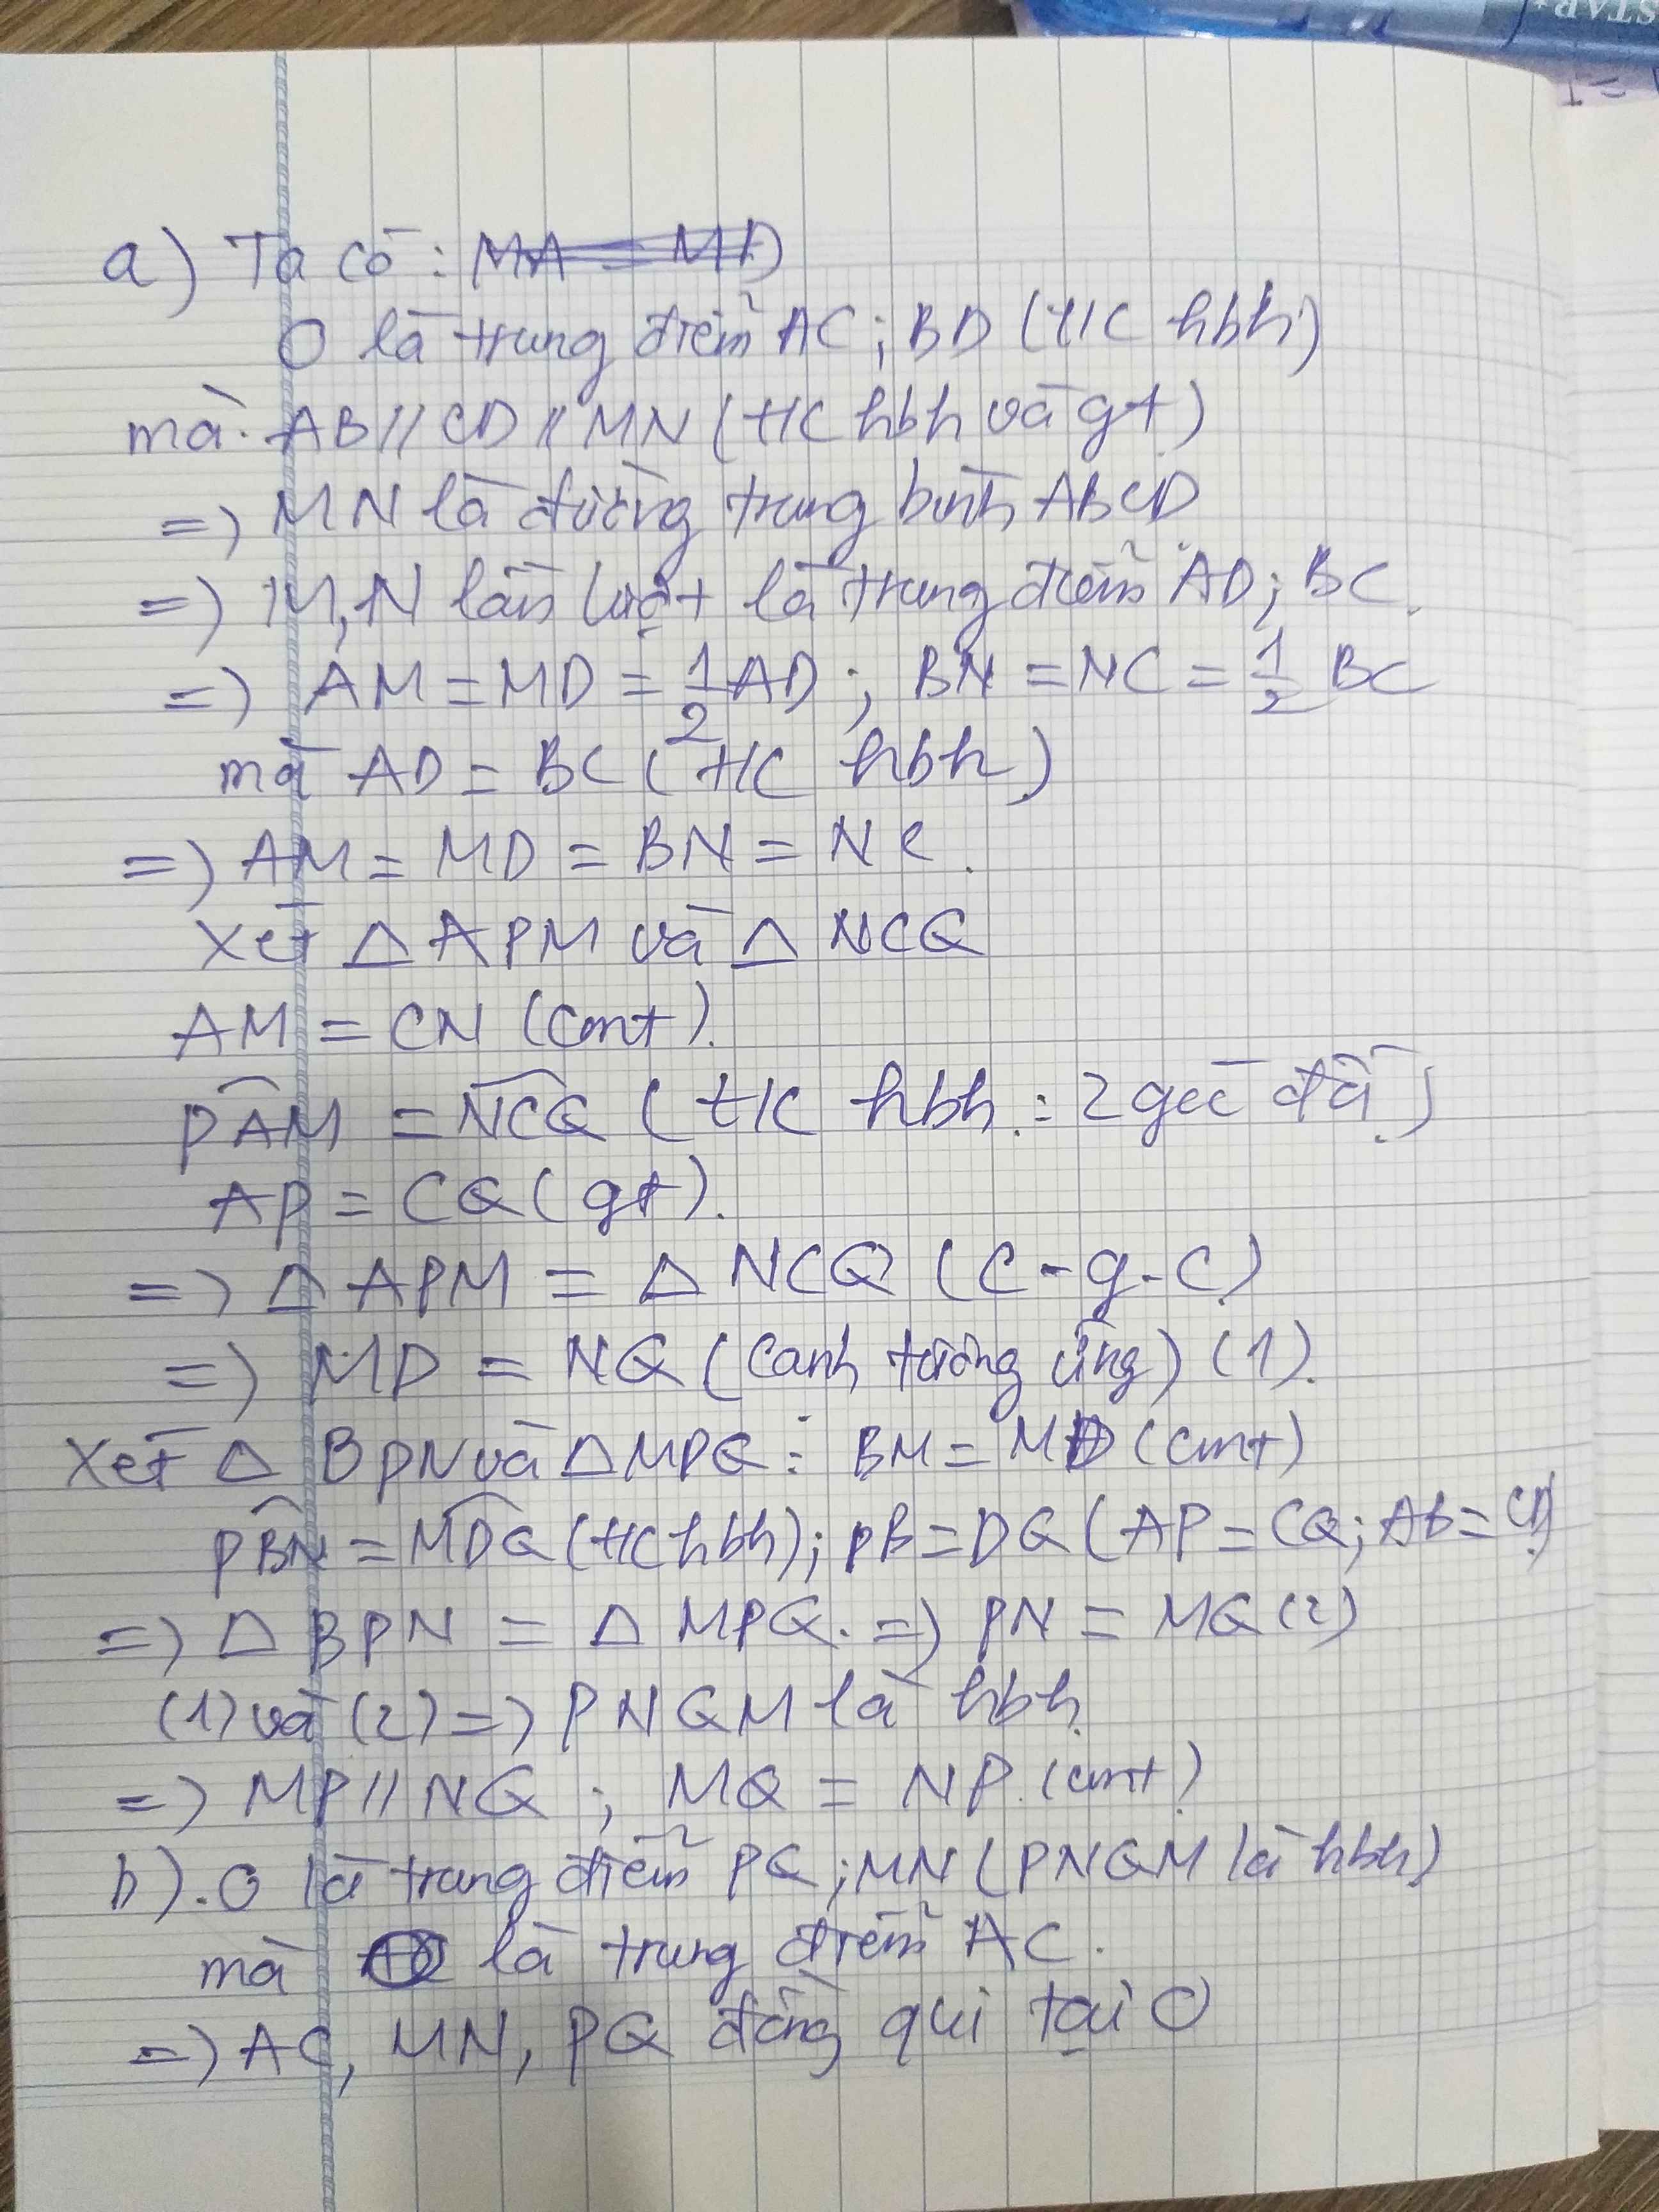 STAR
a) Ta có: MA = MD
O là trung điểm AC; BD (t/c hbh)
mà AB // CD // MN (t/c hbh và gt)
=) MN là đường trung bình ABCD
=) M, N lần lượt là trung điểm AD; BC.
=) AM = MD = 1/2 AD; BN = NC = 1/2 BC
mà AD = BC (t/c hbh)
=) AM = MD = BN = NC.
Xét △ APM và △ NCQ
AM = CN (cmt).
PAM = NCQ (t/c hbh: 2 góc đđ)
AP = CQ (gt).
=) △ APM = △ NCQ (c-g-c)
=) MD = NQ (cạnh tương ứng) (1).
Xét △ BPN và △ MPQ: BM = MD (cmt)
PBN = MDQ (t/c hbh); PB = DQ (AP = CQ; AB = CD)
=) △ BPN = △ MPQ. =) PN = MQ (2)
(1) và (2) =) PNQM là hbh.
=) MP // NQ; MQ = NP. (cmt)
b). O là trung điểm PQ; MN (PNQM là hbh)
mà là trung điểm AC.
=) AC, MN, PQ đồng qui tại O